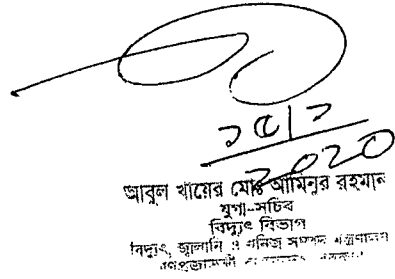 ১৫/১
২০২০
আবুল খায়ের মোঃ আমিনুর রহমান
যুগ্ম-সচিব
বিদ্যুৎ বিভাগ
বিদ্যুৎ, জ্বালানি ও খনিজ সম্পদ মন্ত্রণালয়
গণপ্রজাতন্ত্রী